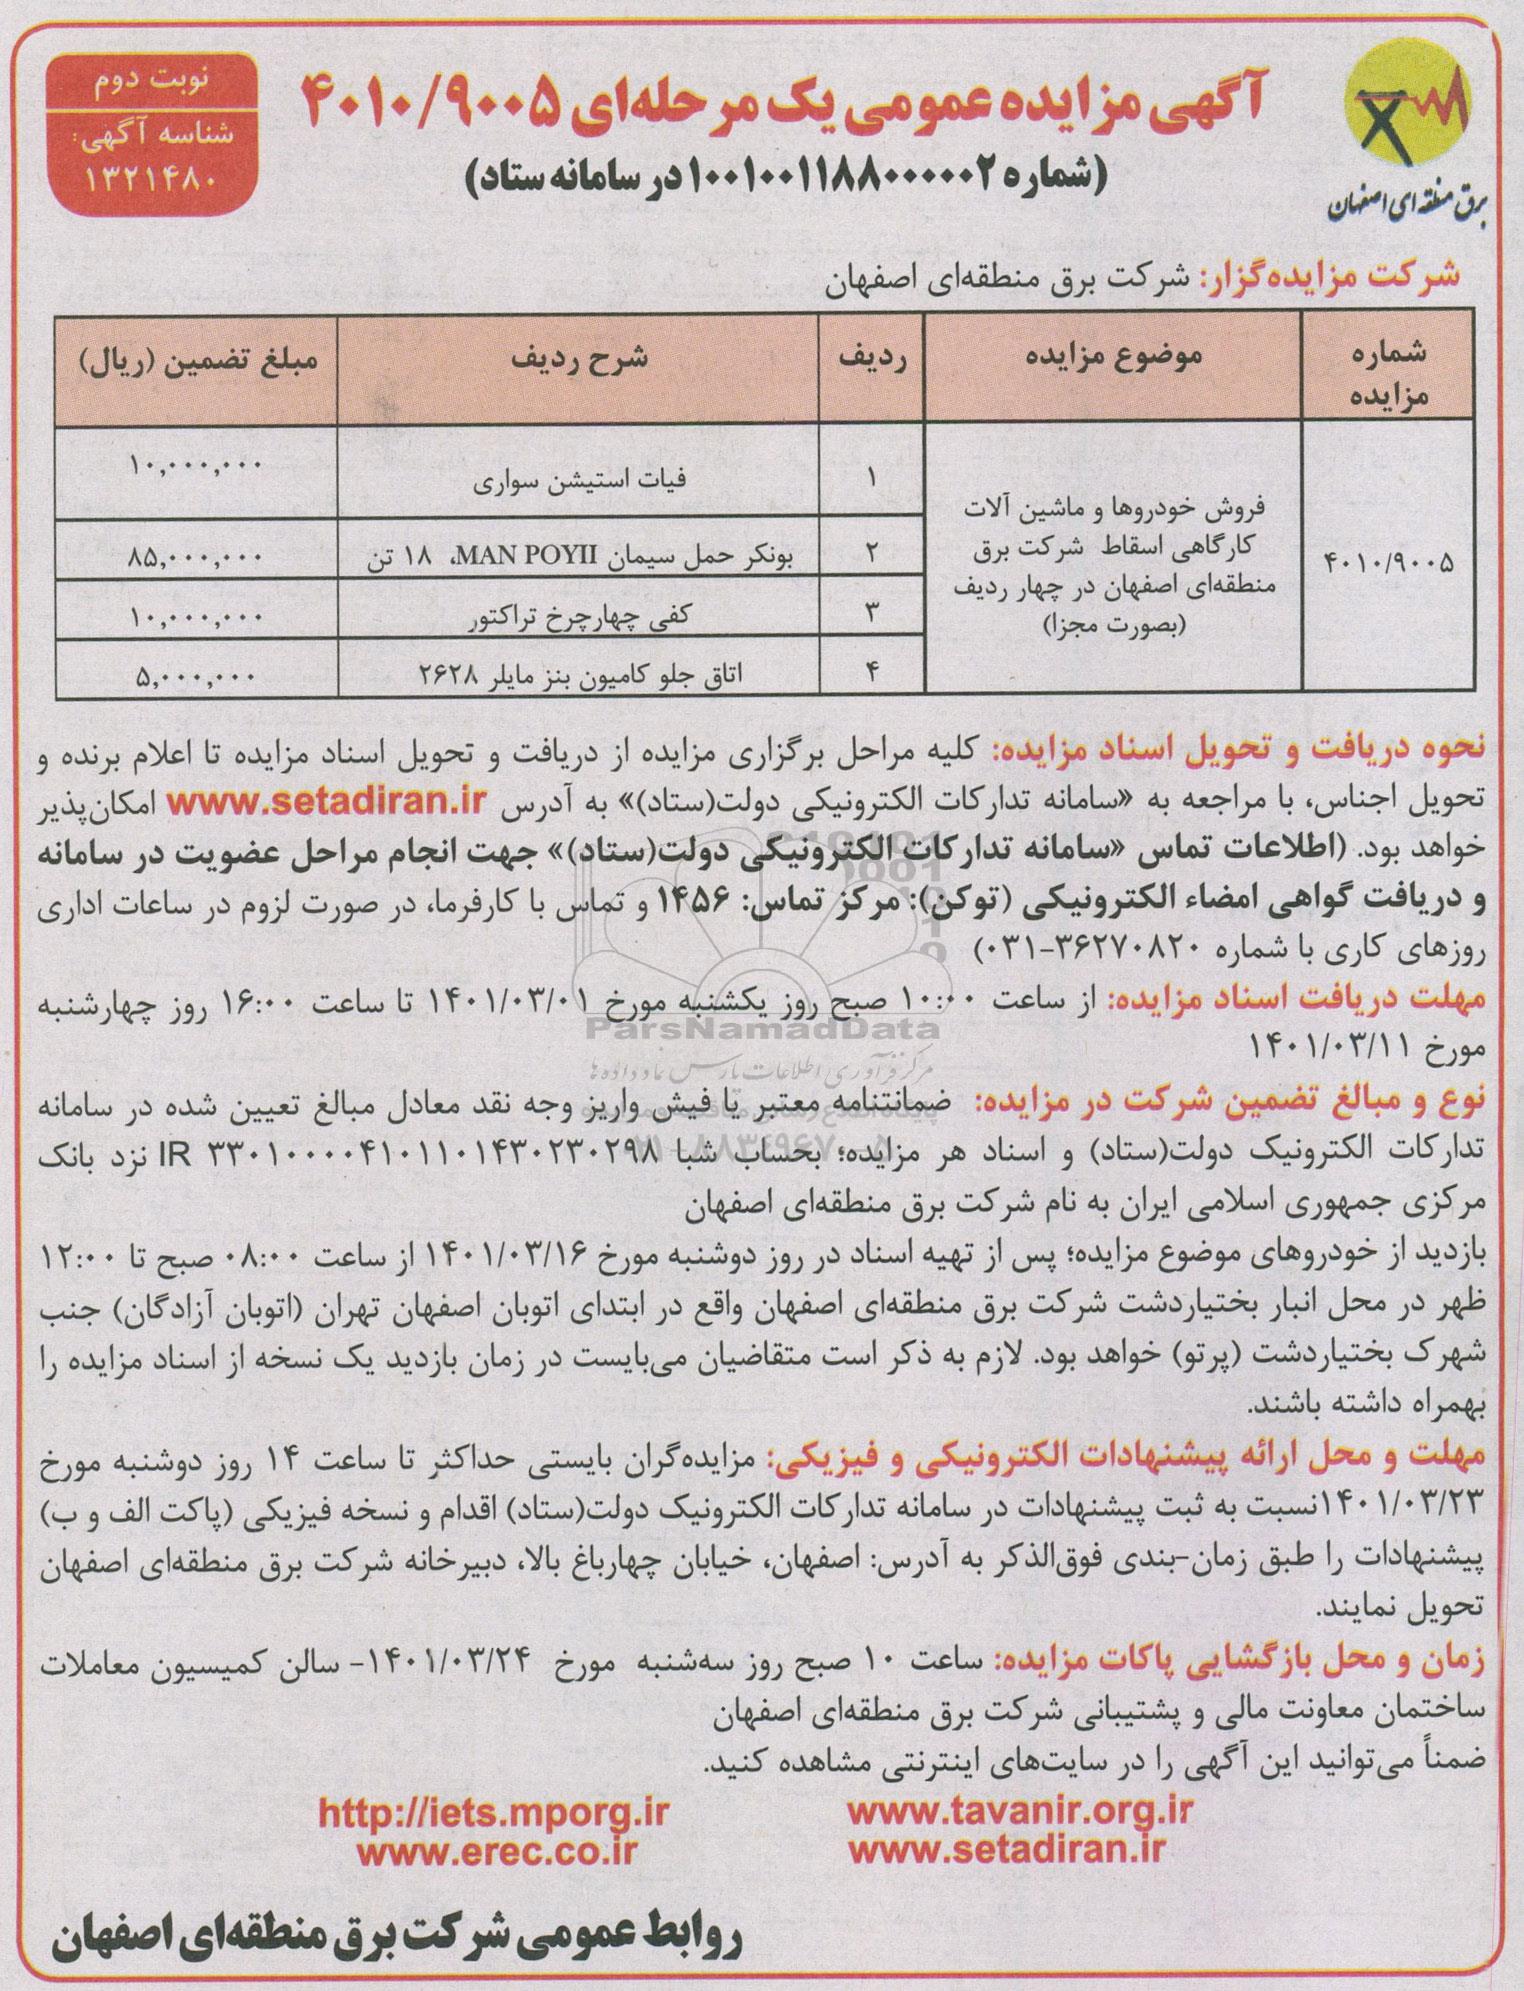 برق منطقه ای اصفهان
آگهی مزایده عمومی یک مرحله‌ای ۴۰۱۰/۹۰۰۵
(شماره ۱۰۰۱۰۰۱۱۸۸۰۰۰۰۰۲ در سامانه ستاد)
نوبت دوم
شناسه آگهی:
۱۳۲۱۴۸۰
شرکت مزایده‌گزار: شرکت برق منطقه‌ای اصفهان
شماره مزایده
موضوع مزایده
ردیف
شرح ردیف
مبلغ تضمین (ریال)
۴۰۱۰/۹۰۰۵
فروش خودروها و ماشین آلات
کارگاهی اسقاط شرکت برق
منطقه‌ای اصفهان در چهار ردیف
(بصورت مجزا)
۱ فیات استیشن سواری ۱۰,۰۰۰,۰۰۰
۲ بونکر حمل سیمان MAN POYII، ۱۸ تن ۸۵,۰۰۰,۰۰۰
۳ کفی چهارچرخ تراکتور ۱۰,۰۰۰,۰۰۰
۴ اتاق جلو کامیون بنز مایلر ۲۶۲۸ ۵,۰۰۰,۰۰۰
نحوه دریافت و تحویل اسناد مزایده: کلیه مراحل برگزاری مزایده از دریافت و تحویل اسناد مزایده تا اعلام برنده و
تحویل اجناس، با مراجعه به «سامانه تدارکات الکترونیکی دولت(ستاد)» به آدرس www.setadiran.ir امکان‌پذیر
خواهد بود. (اطلاعات تماس «سامانه تدارکات الکترونیکی دولت(ستاد)» جهت انجام مراحل عضویت در سامانه
و دریافت گواهی امضاء الکترونیکی (توکن): مرکز تماس: ۱۴۵۶ و تماس با کارفرما، در صورت لزوم در ساعات اداری
روزهای کاری با شماره ۳۶۲۷۰۸۲۰-۰۳۱)
مهلت دریافت اسناد مزایده: از ساعت ۱۰:۰۰ صبح روز یکشنبه مورخ ۱۴۰۱/۰۳/۰۱ تا ساعت ۱۶:۰۰ روز چهارشنبه
مورخ ۱۴۰۱/۰۳/۱۱
ParsNamadData
مرکز فرآوری اطلاعات پارس نماد داده‌ها
نوع و مبالغ تضمین شرکت در مزایده: ضمانتنامه معتبر یا فیش واریز وجه نقد معادل مبالغ تعیین شده در سامانه
تدارکات الکترونیک دولت(ستاد) و اسناد هر مزایده؛ بحساب شبا IR ۳۳۰۱۰۰۰۰۴۱۰۱۱۰۱۴۳۰۲۳۰۲۹۸ نزد بانک
مرکزی جمهوری اسلامی ایران به نام شرکت برق منطقه‌ای اصفهان
بازدید از خودروهای موضوع مزایده؛ پس از تهیه اسناد در روز دوشنبه مورخ ۱۴۰۱/۰۳/۱۶ از ساعت ۰۸:۰۰ صبح تا ۱۲:۰۰
ظهر در محل انبار بختیاردشت شرکت برق منطقه‌ای اصفهان واقع در ابتدای اتوبان اصفهان تهران (اتوبان آزادگان) جنب
شهرک بختیاردشت (پرتو) خواهد بود. لازم به ذکر است متقاضیان می‌بایست در زمان بازدید یک نسخه از اسناد مزایده را
بهمراه داشته باشند.
مهلت و محل ارائه پیشنهادات الکترونیکی و فیزیکی: مزایده‌گران بایستی حداکثر تا ساعت ۱۴ روز دوشنبه مورخ
۱۴۰۱/۰۳/۲۳نسبت به ثبت پیشنهادات در سامانه تدارکات الکترونیک دولت(ستاد) اقدام و نسخه فیزیکی (پاکت الف و ب)
پیشنهادات را طبق زمان-بندی فوق‌الذکر به آدرس: اصفهان، خیابان چهارباغ بالا، دبیرخانه شرکت برق منطقه‌ای اصفهان
تحویل نمایند.
زمان و محل بازگشایی پاکات مزایده: ساعت ۱۰ صبح روز سه‌شنبه مورخ ۱۴۰۱/۰۳/۲۴- سالن کمیسیون معاملات
ساختمان معاونت مالی و پشتیبانی شرکت برق منطقه‌ای اصفهان
ضمناً می‌توانید این آگهی را در سایت‌های اینترنتی مشاهده کنید.
www.tavanir.org.ir http://iets.mporg.ir
www.setadiran.ir www.erec.co.ir
روابط عمومی شرکت برق منطقه‌ای اصفهان